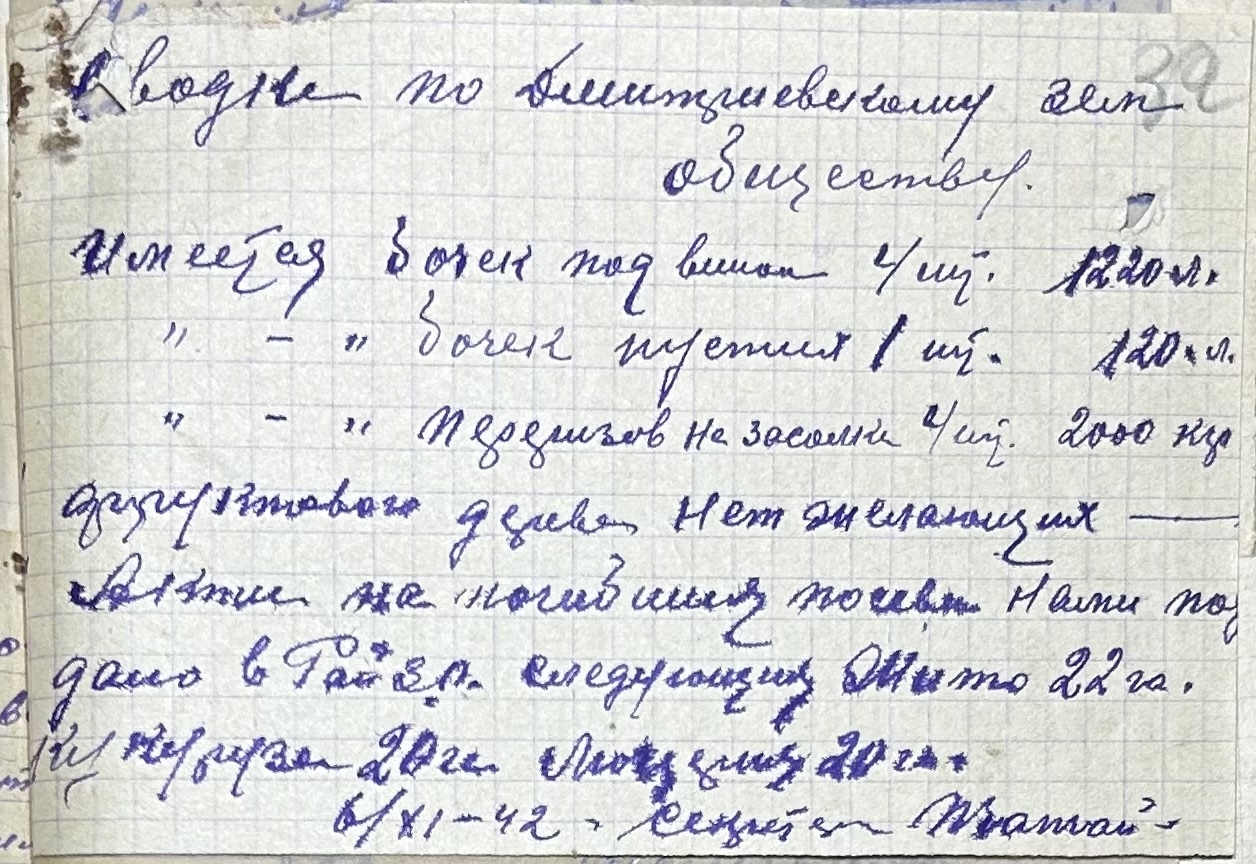 39
Сводка по Дмитриевскому зем
обществу.
Имеется бочек под вином 4/шт. 1220 л.
" - " бочек пустых 1 шт. 120 л.
" - " на засолки 4/шт. 2000 кгр
фруктового дерева нет желающих —
Акти на погибший посев нами по
дано в РайЗО. следующий Жито 22 га.
Кукуруза 20 га. Люцерни 20 га.
6/XI-42 - Секретарь